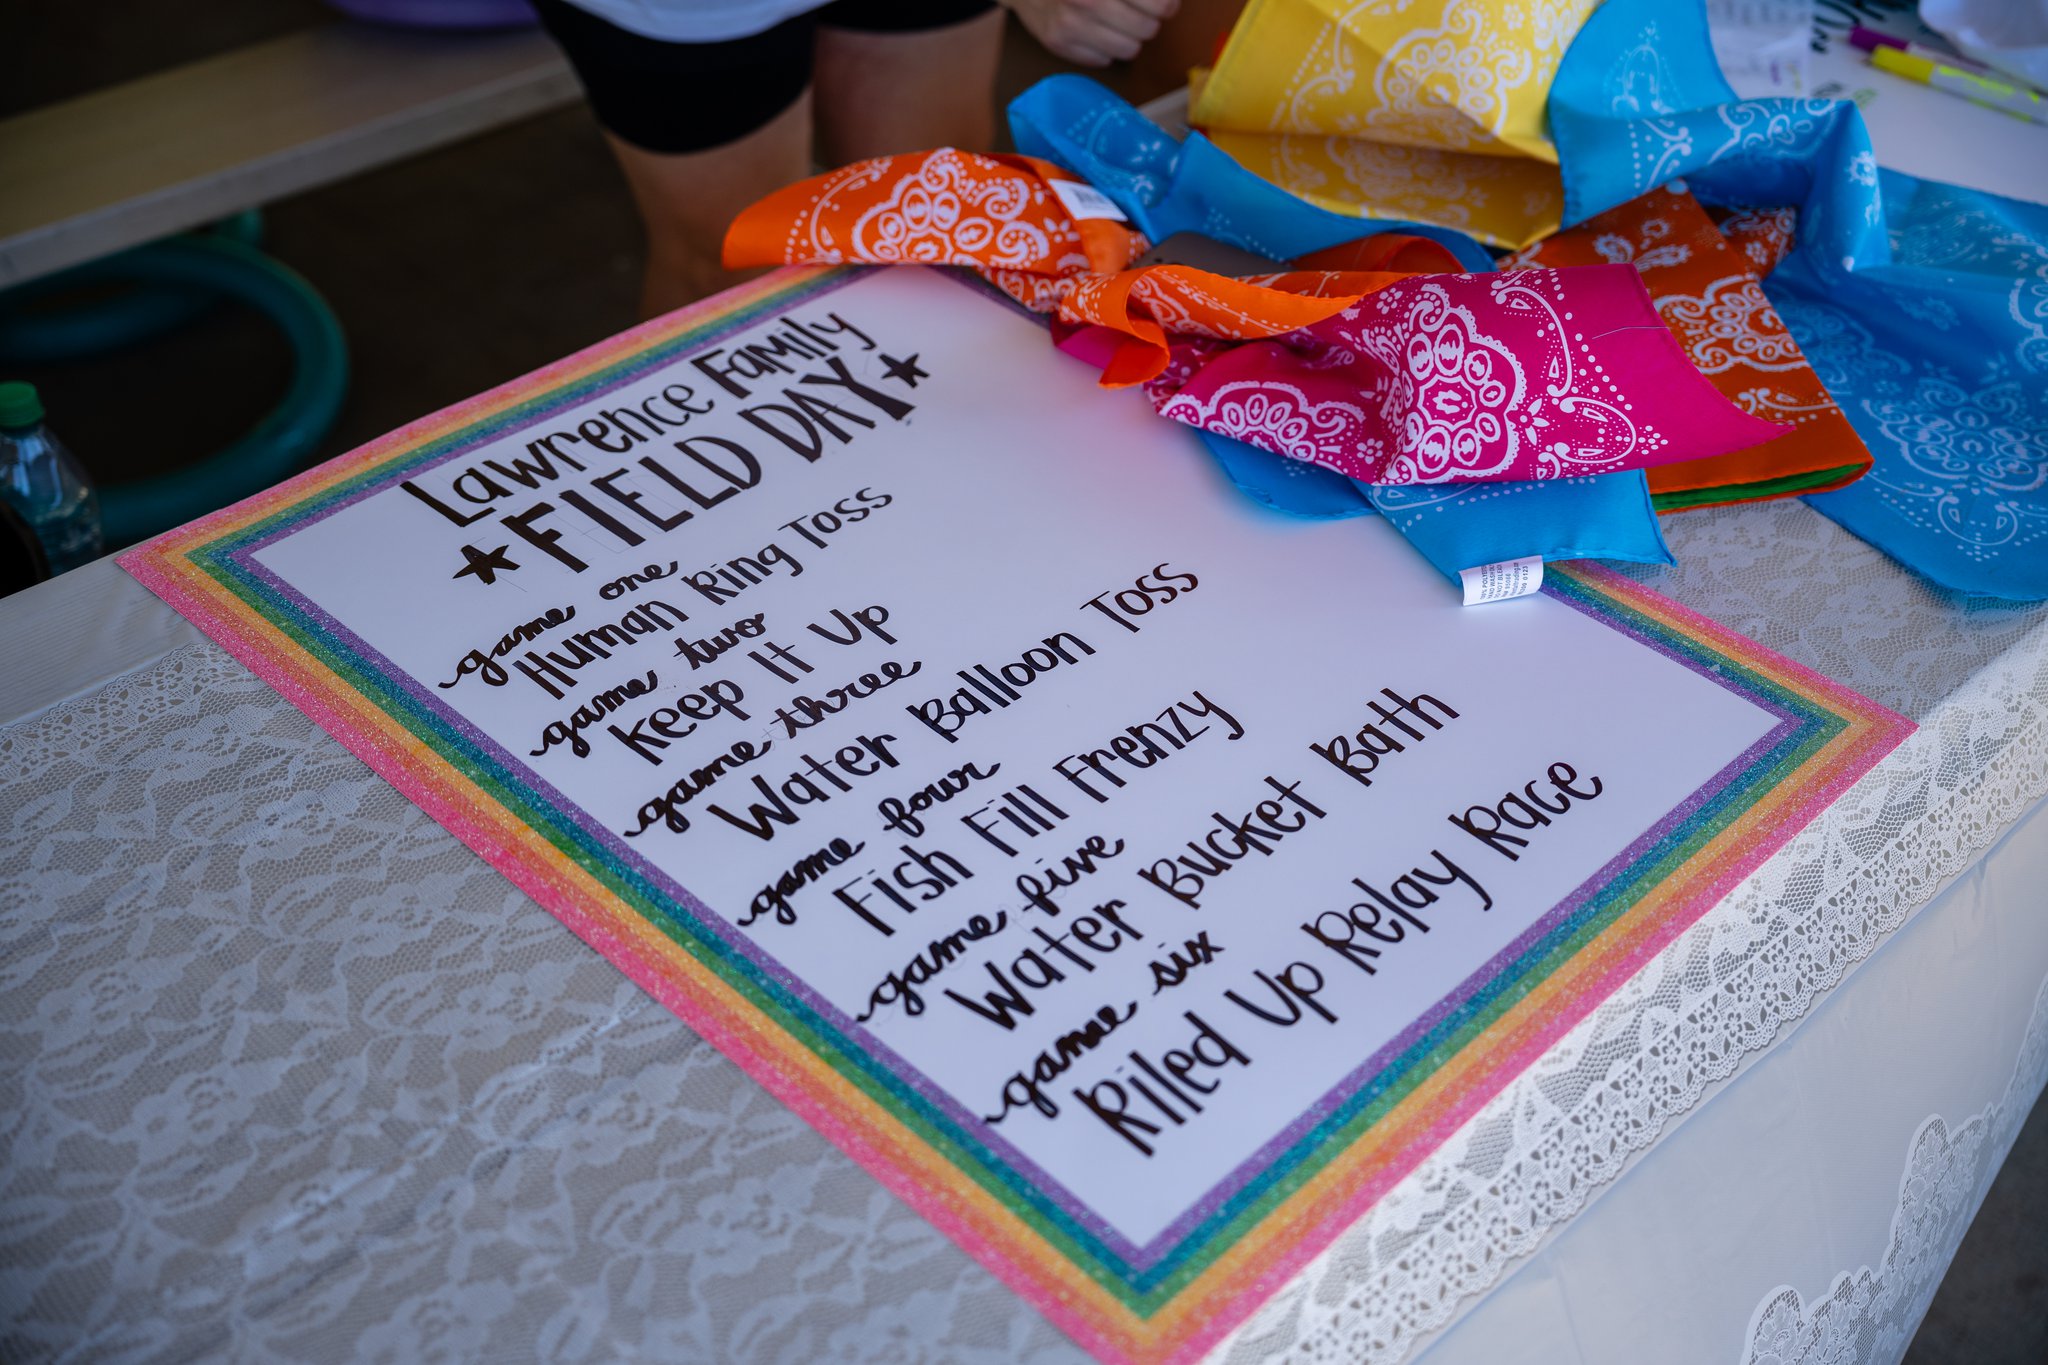 Lawrence Family
FIELD DAY
game one
Human Ring Toss
game two
Keep It Up
game three
Water Balloon Toss
game four
Fish Fill Frenzy
game five
Water Bucket Bath
game six
Riled Up Relay Race